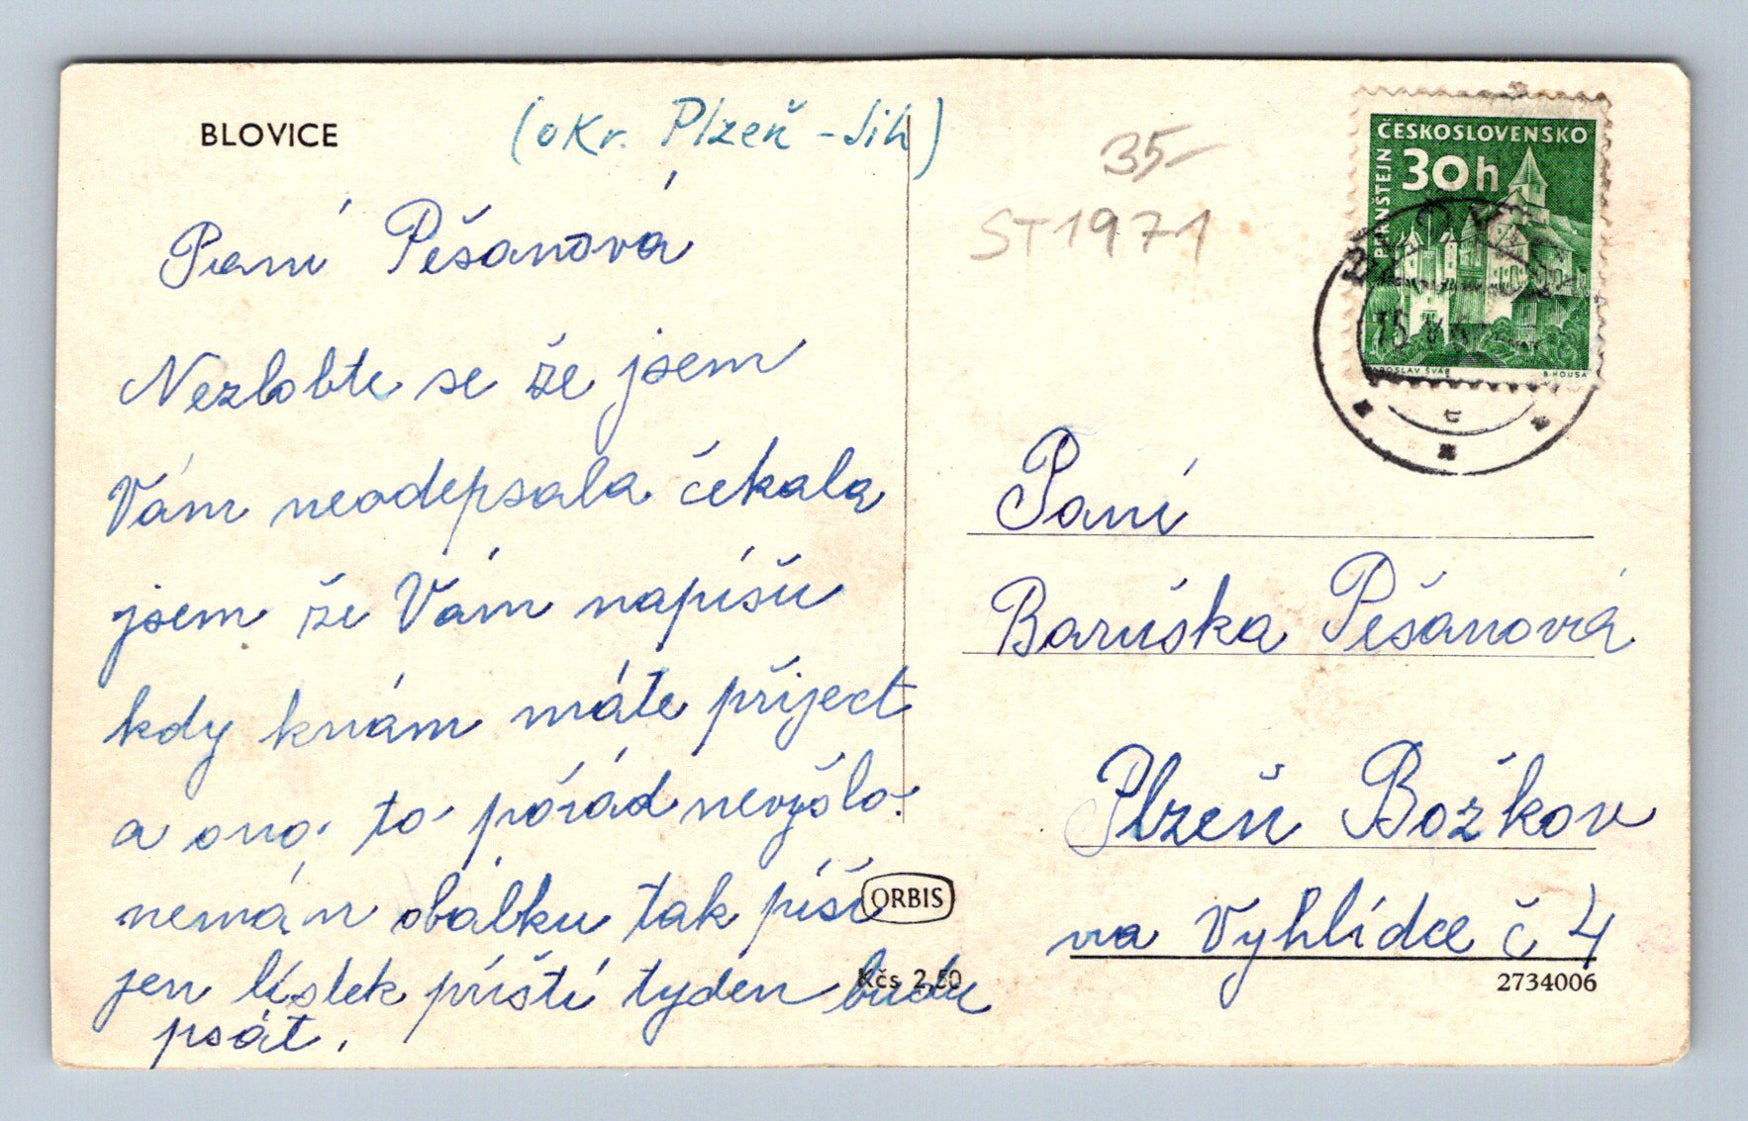 BLOVICE
(okr. Plzeň - Jih)
Paní Pěšanová
Nezlobte se že jsem
Vám neodepsala čekala
jsem že Vám napíšu
kdy knám máte přiject
a ono to pórád nevyšlo.
nemám obálku tak píši
jen lístek příští tyden budu
psát.
35-
ST1971
ČESKOSLOVENSKO
30h
PERNŠTEJN
JAROSLAV ŠVÁB
B. HOUSA
Paní
Baruška Pěšanová
Plzeň Božkov
na Vyhlídce č 4
ORBIS
Kčs 2,50
2734006